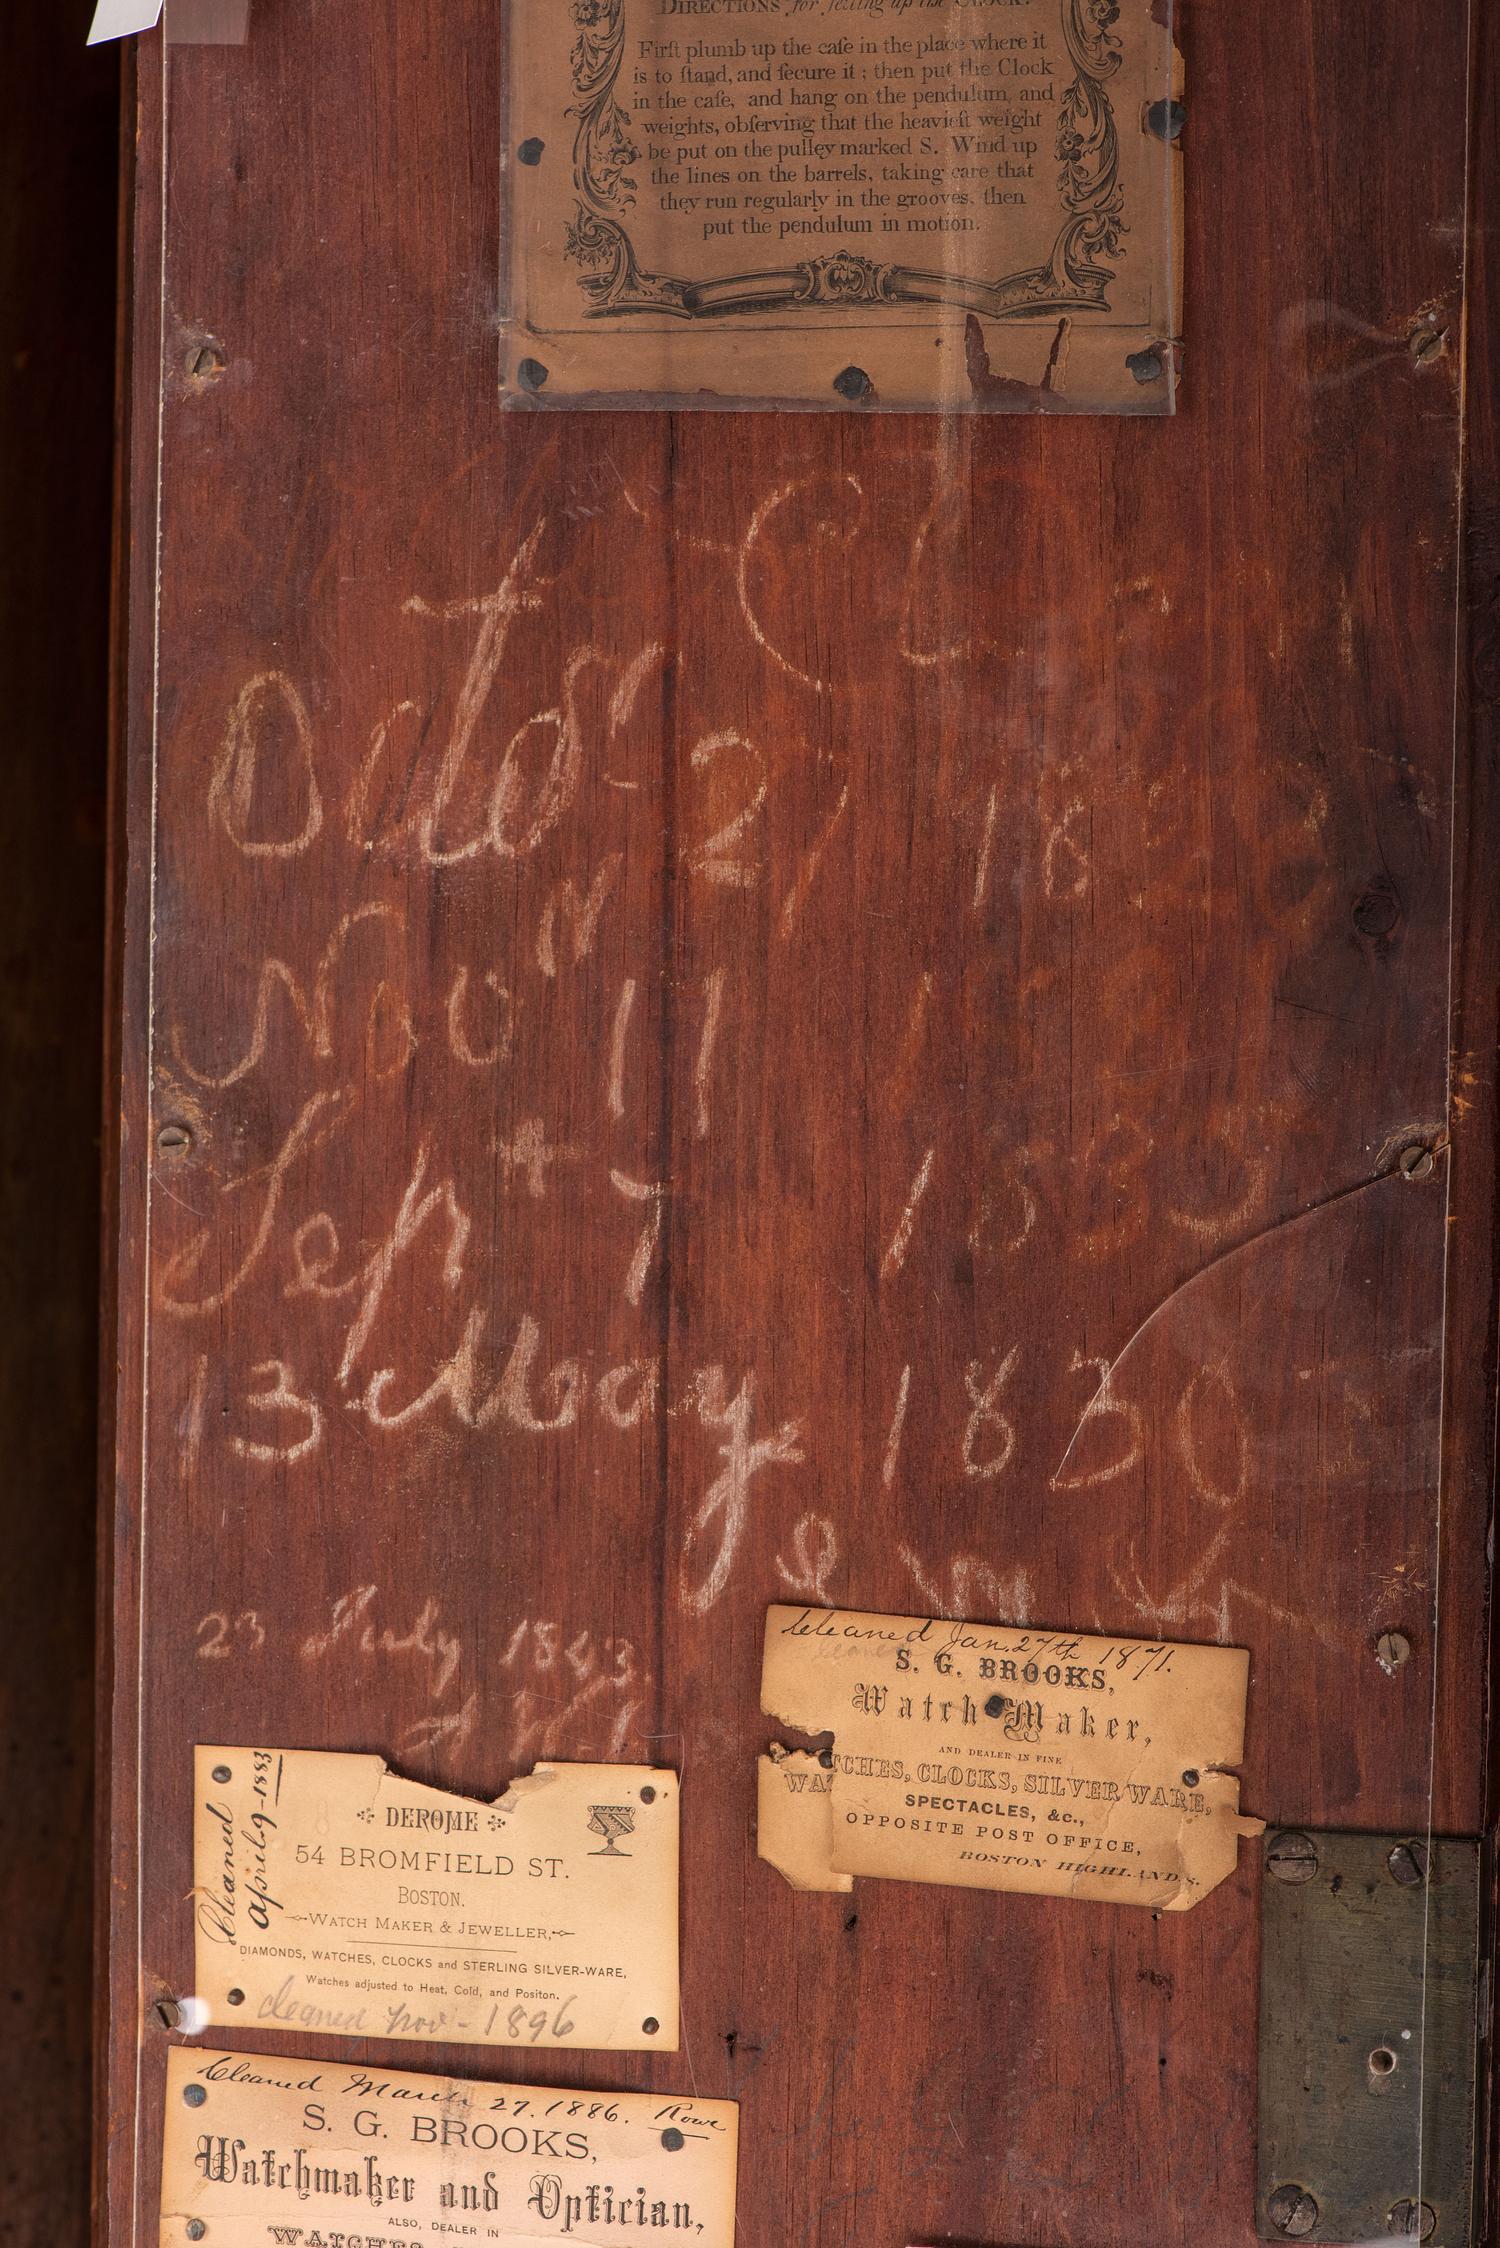 DIRECTIONS for setting up the CLOCK.
Firſt plumb up the caſe in the place where it
is to ſtand, and ſecure it ; then put the Clock
in the caſe, and hang on the pendulum, and
weights, obſerving that the heavieſt weight
be put on the pulley marked S. Wind up
the lines on the barrels, taking care that
they run regularly in the grooves, then
put the pendulum in motion.
Octor 27 18
Novr 11 1
Sept 7 1833
13 May 1830
23 July 1843
Cleaned Jan. 27th 1871.
S. G. BROOKS,
Watch Maker,
AND DEALER IN FINE
WATCHES, CLOCKS, SILVER WARE,
SPECTACLES, &c.,
OPPOSITE POST OFFICE,
BOSTON HIGHLANDS.
Cleaned
April 9-1883
DEROME
54 BROMFIELD ST.
BOSTON.
WATCH MAKER & JEWELLER,
DIAMONDS, WATCHES, CLOCKS and STERLING SILVER-WARE,
Watches adjusted to Heat, Cold, and Positon.
cleaned nov - 1896
Cleaned March 27. 1886. Rowe
S. G. BROOKS,
Watchmaker and Optician,
ALSO, DEALER IN
WATCHES